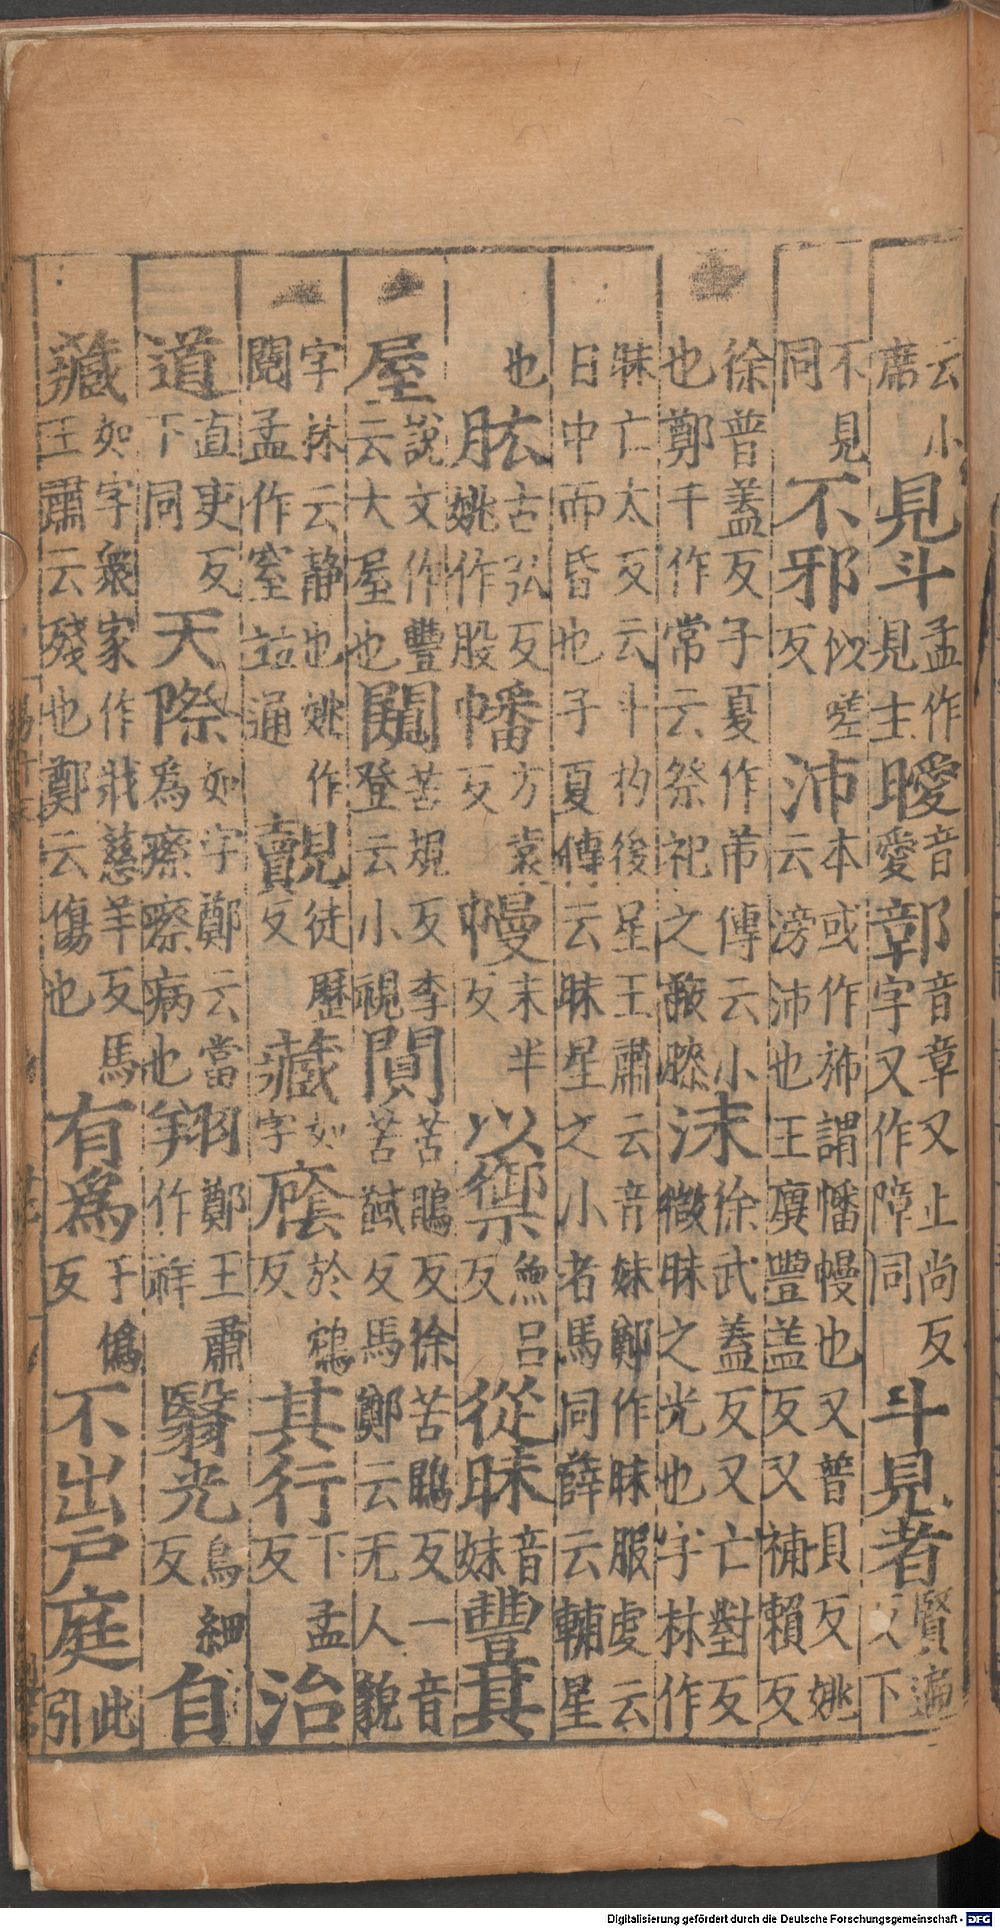 云小席見斗孟作見主曖音愛鄣音章又止尚反字又作障同斗見者賢遍反下
不見同不邪似嗟反沛本或作旆謂幡幔也又普貝反姚云滂沛也王廙豐盖反又補賴反
徐普蓋反子夏作芾傳云小也鄭千作常云祭祀之蔽膝沬徐武蓋反又亡對反微昧之光也字林作
昧亡太反云斗杓後星王肅云音妹鄭作昧服虔云日中而昏也子夏傳云昧星之小者馬同薛云輔星
也肱古弘反姚作股幡方袁反幔末半反以禦魚呂反從昧音妹豐其
屋說文作豐云大屋也闚苦規反李登云小視闃苦鵙反徐苦鵙反一音苦馘反馬鄭云无人貌
字林云静也姚作閱孟作窒竝通覿徒歷反藏如字廕於鴆反其行下孟反治
道直吏反下同天際如字鄭云當為瘵瘵病也翔鄭王肅作祥翳光烏細反自
藏如字衆家作戕慈羊反馬王肅云殘也鄭云傷也有為于偽反不出戶庭此引
Digitalisierung gefördert durch die Deutsche Forschungsgemeinschaft - DFG